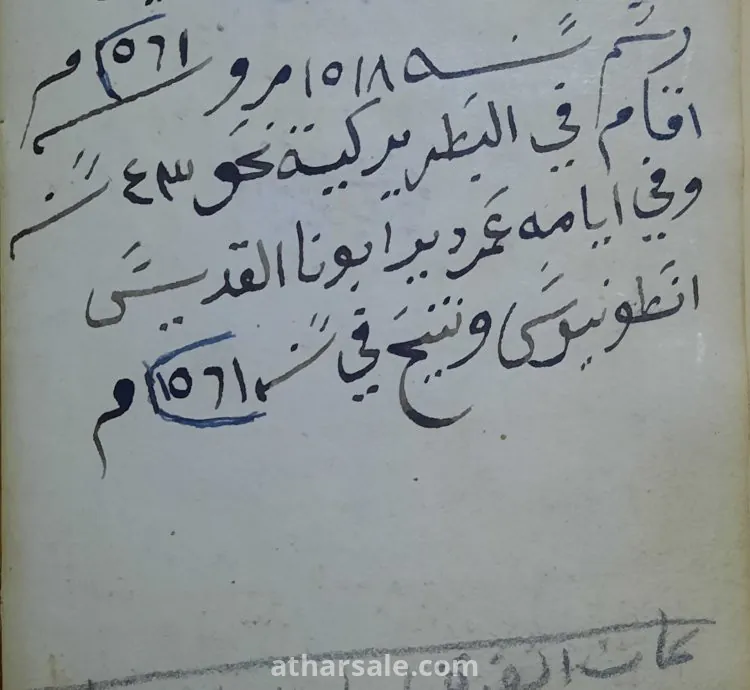 رسم سنة ١٥١٨ م و ١٥٦١ م
اقام في البطريركية نحو ٤٣ سنة
وفي ايامه عمر دير ابونا القديس
انطونيوس وتنيح في سنة ١٥٦١ م
atharsale.com